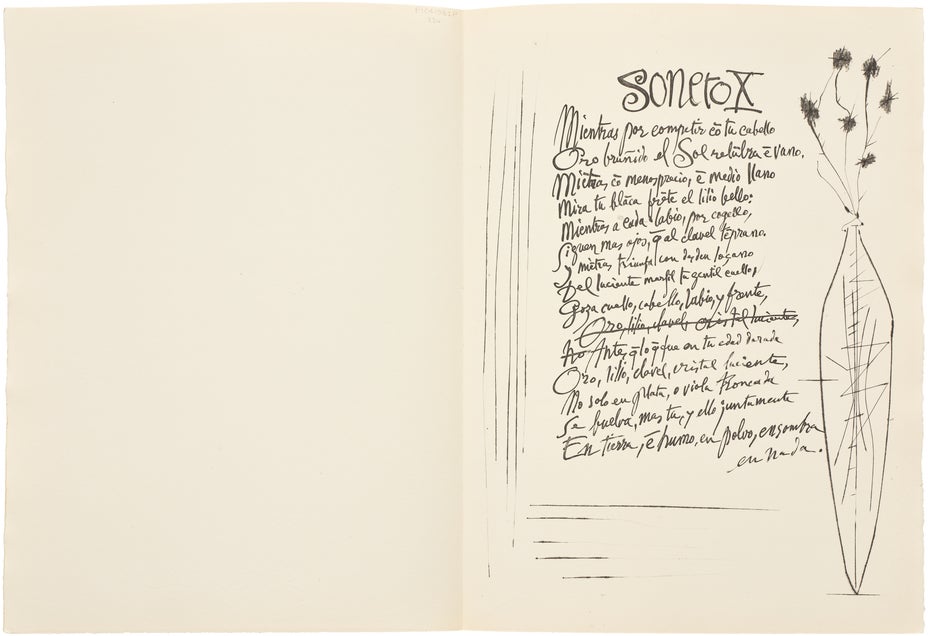 Soneto X
Mientras por competir cō tu cabello
Oro bruñido el Sol relūbra ē vano,
Miētras cō menosprecio, ē medio llano
Mira tu blāca frēte el lilio bello:
Mientras a cada labio, por cogello,
Siguen mas ojos, q̄ al clavel tēprano.
y miētras triunfa con desden loçano
Del luciente marfil tu gentil cuello,
Goza cuello, cabello, labio, y frente,
Oro, lilio, clavel, cristal luciente,
No Antes, q̄ lo q̄ fue en tu edad dorada
Oro, lilio, clavel, cristal luciente,
No solo en plata, o viola troncada
Se buelva, mas tu, y ello juntamente
En tierra, ē humo, en polvo, en sombra
en nada.